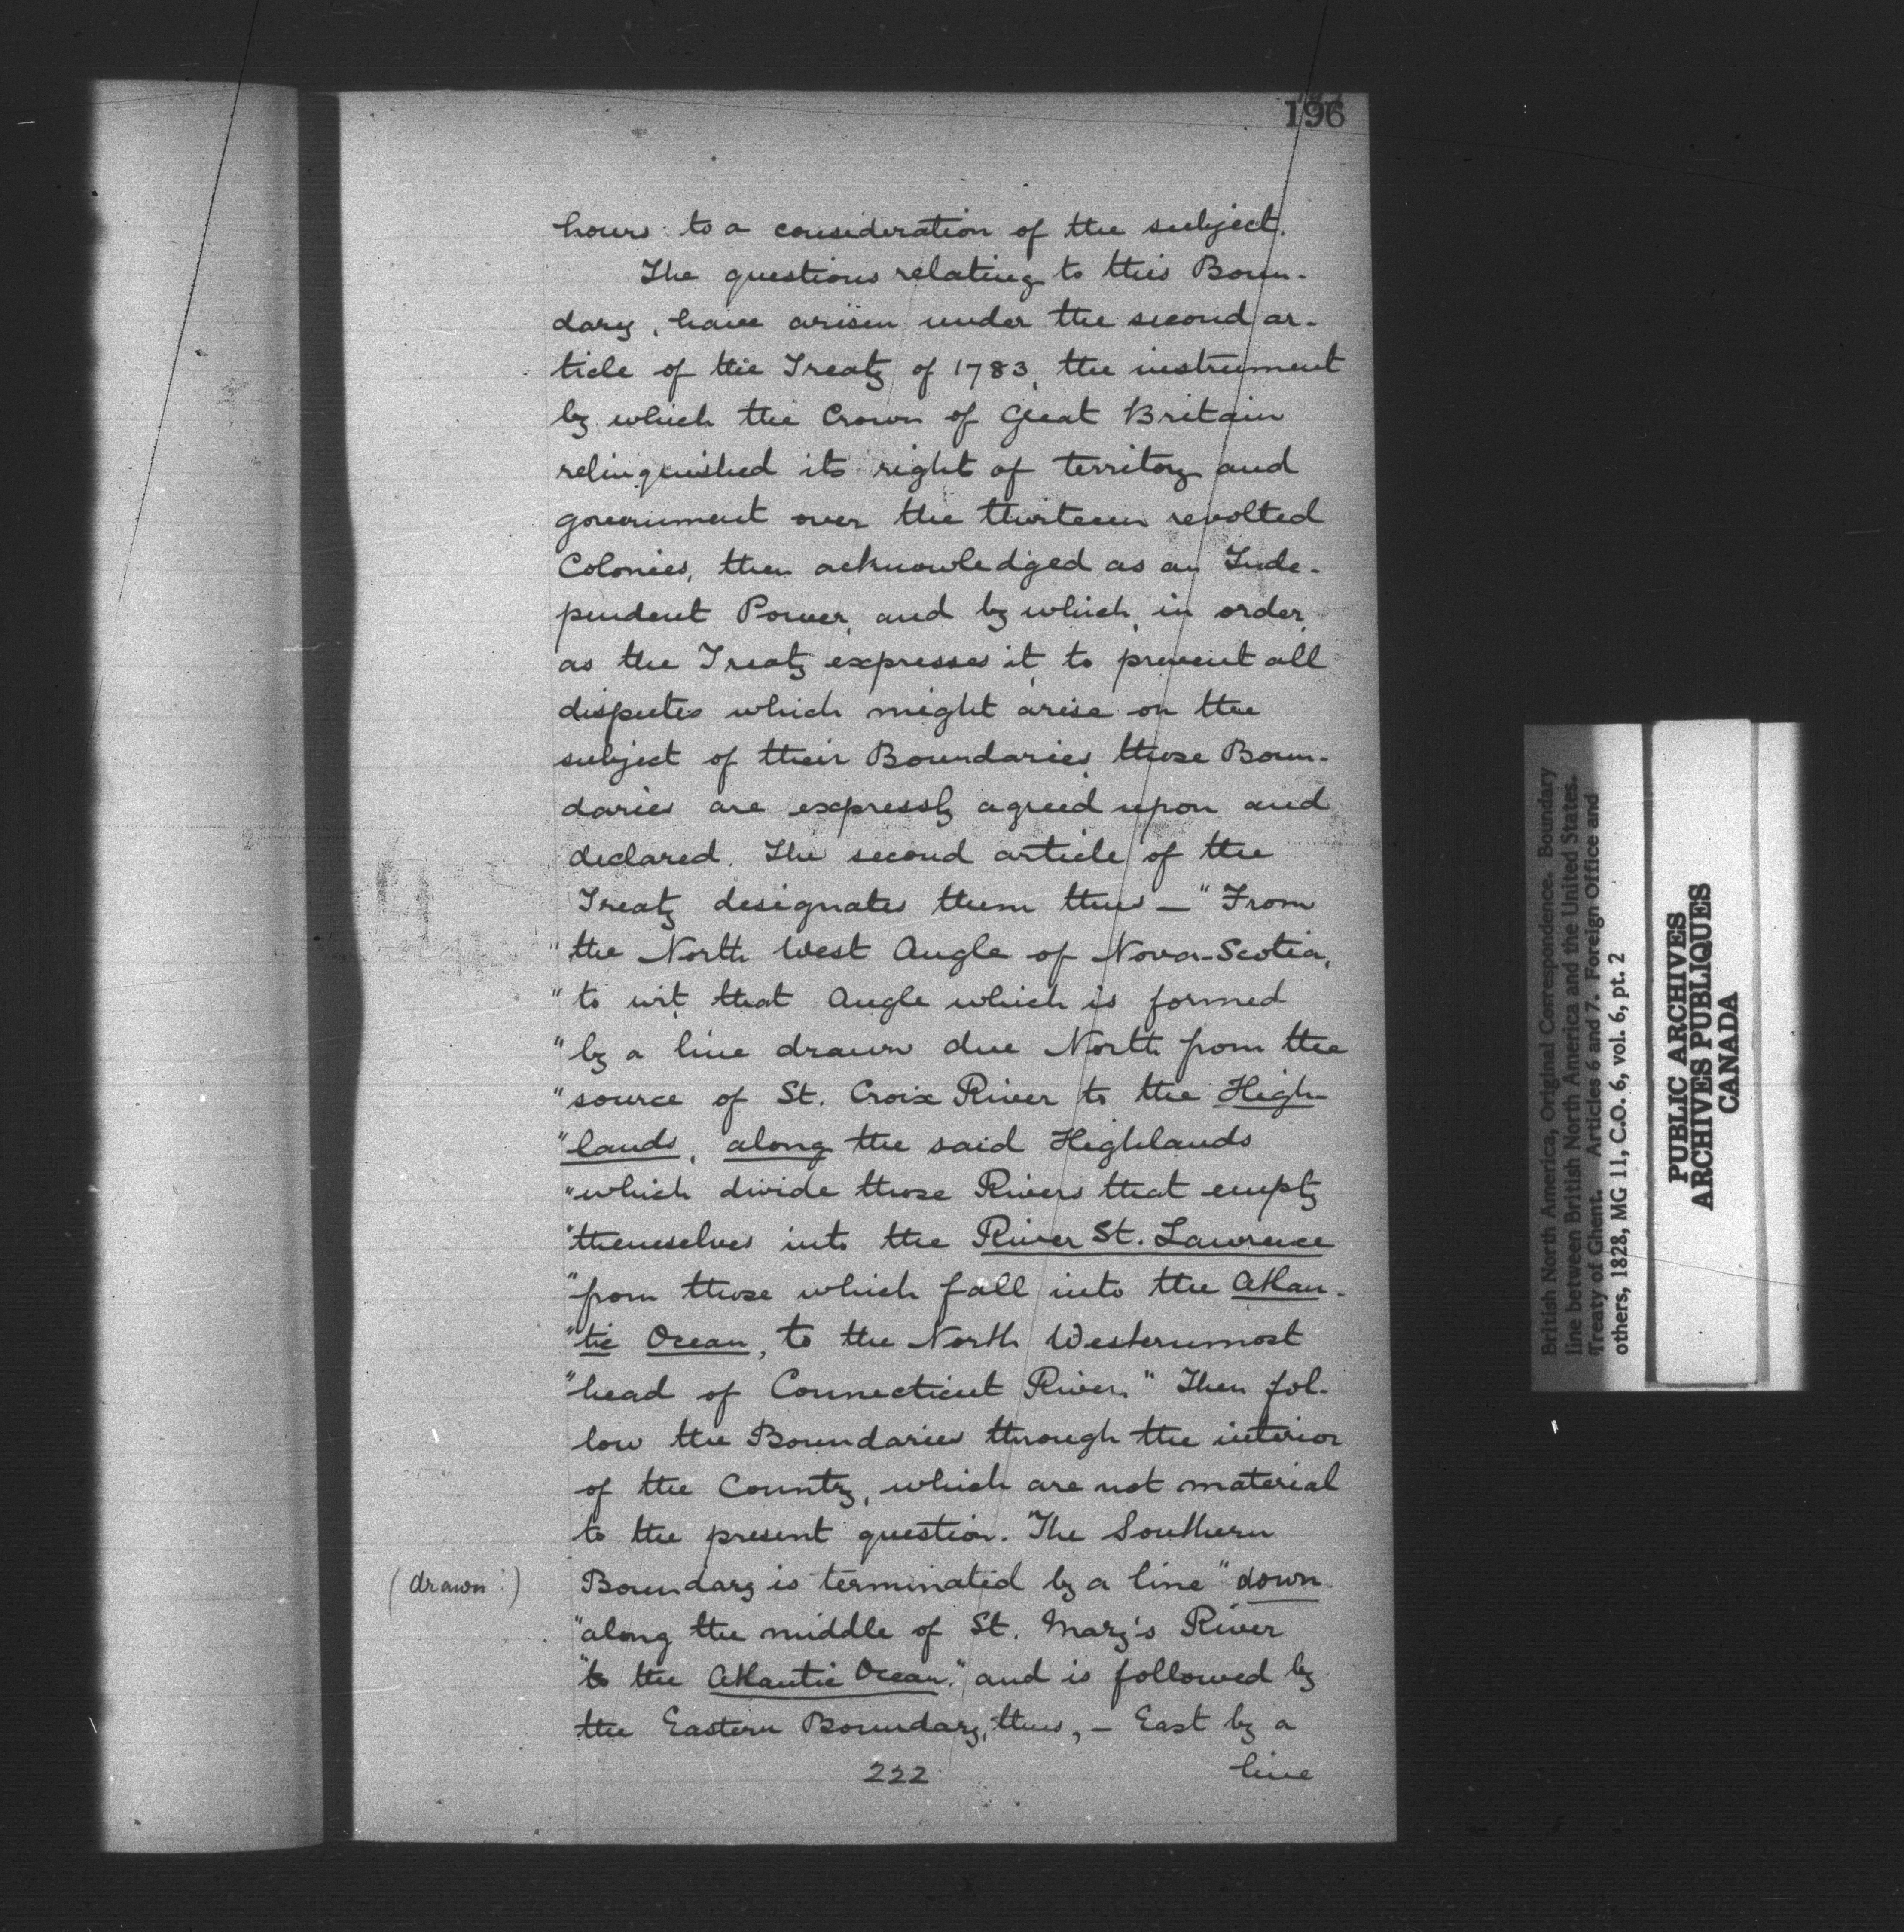 196
hours to a consideration of the subject.
The questions relating to this Boun-
dary, have arisen under the second ar-
ticle of the Treaty of 1783, the instrument
by which the Crown of Great Britain
relinquished its right of territory and
government over the thirteen revolted
Colonies, then acknowledged as an Inde-
pendent Power, and by which, in order,
as the Treaty expresses it, to prevent all
disputes which might arise on the
subject of their Boundaries, those Boun-
daries are expressly agreed upon and
declared. The second article of the
Treaty designates them thus — "From
"the North West Angle of Nova-Scotia,
"to wit, that Angle which is formed
"by a line drawn due North from the
"source of St. Croix River to the High-
"lands, along the said Highlands
"which divide those Rivers that empty
"themselves into the River St. Lawrence
"from those which fall into the Atlan-
"tic Ocean, to the North Westernmost
"head of Connecticut River." Then fol-
low the Boundaries through the interior
of the Country, which are not material
to the present question. The Southern
(drawn?) Boundary is terminated by a line "down
"along the middle of St. Mary's River
"to the Atlantic Ocean," and is followed by
the Eastern Boundary, thus, — East by a
222 line
British North America, Original Correspondence. Boundary
line between British North America and the United States.
Treaty of Ghent. Articles 6 and 7. Foreign Office and
others, 1828, MG 11, C.O. 6, vol. 6, pt. 2
PUBLIC ARCHIVES
ARCHIVES PUBLIQUES
CANADA